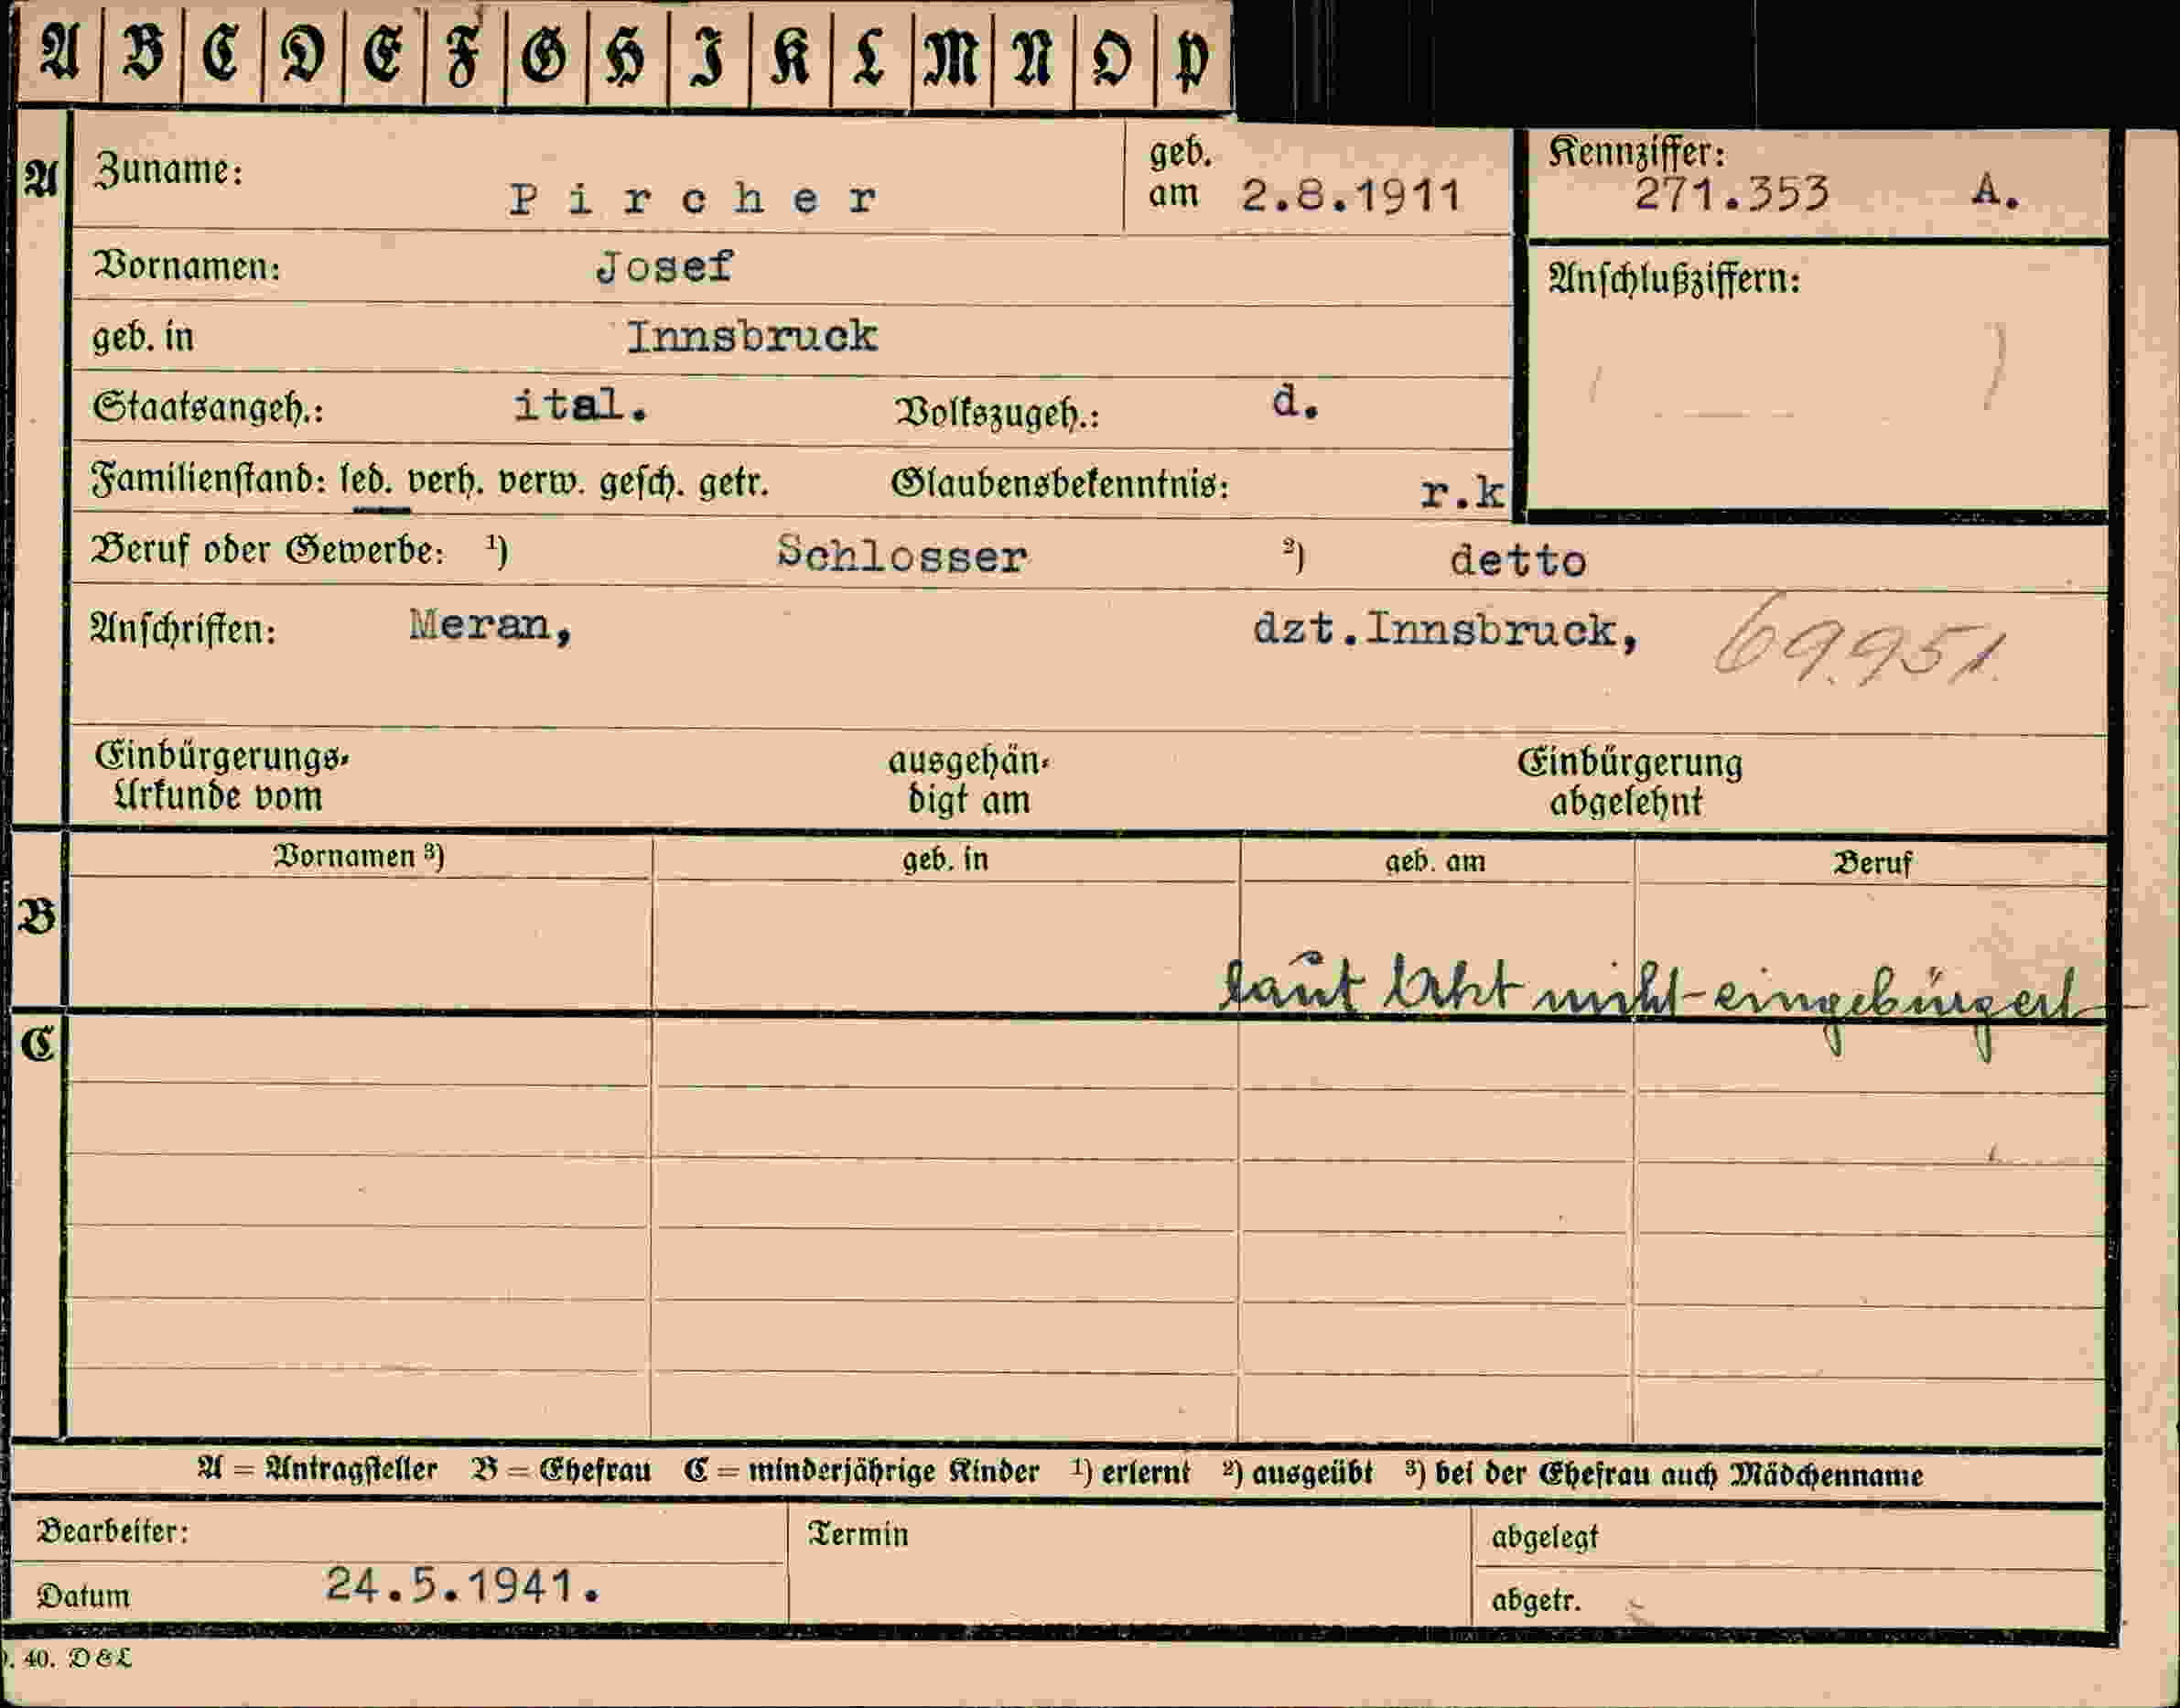 A B C D E F G H I K L M N O P
A
Zuname: Pircher geb. am 2.8.1911
Kennziffer: 271.353 A.
Vornamen: Josef
Anschlußziffern:
geb. in Innsbruck
Staatsangeh.: ital. Volkszugeh.: d.
Familienstand: led. verh. verw. gesch. getr. Glaubensbekenntnis: r.k
Beruf oder Gewerbe: ¹) Schlosser ²) detto
Anschriften: Meran, dzt.Innsbruck, 69.951.
Einbürgerungs- ausgehän- Einbürgerung
Urkunde vom digt am abgelehnt
Vornamen ³) geb. in geb. am Beruf
B
laut Akt nicht eingebürgert
C
A = Antragsteller B = Ehefrau C = minderjährige Kinder ¹) erlernt ²) ausgeübt ³) bei der Ehefrau auch Mädchenname
Bearbeiter: Termin abgelegt
Datum 24.5.1941. abgetr.
. 40. D & L